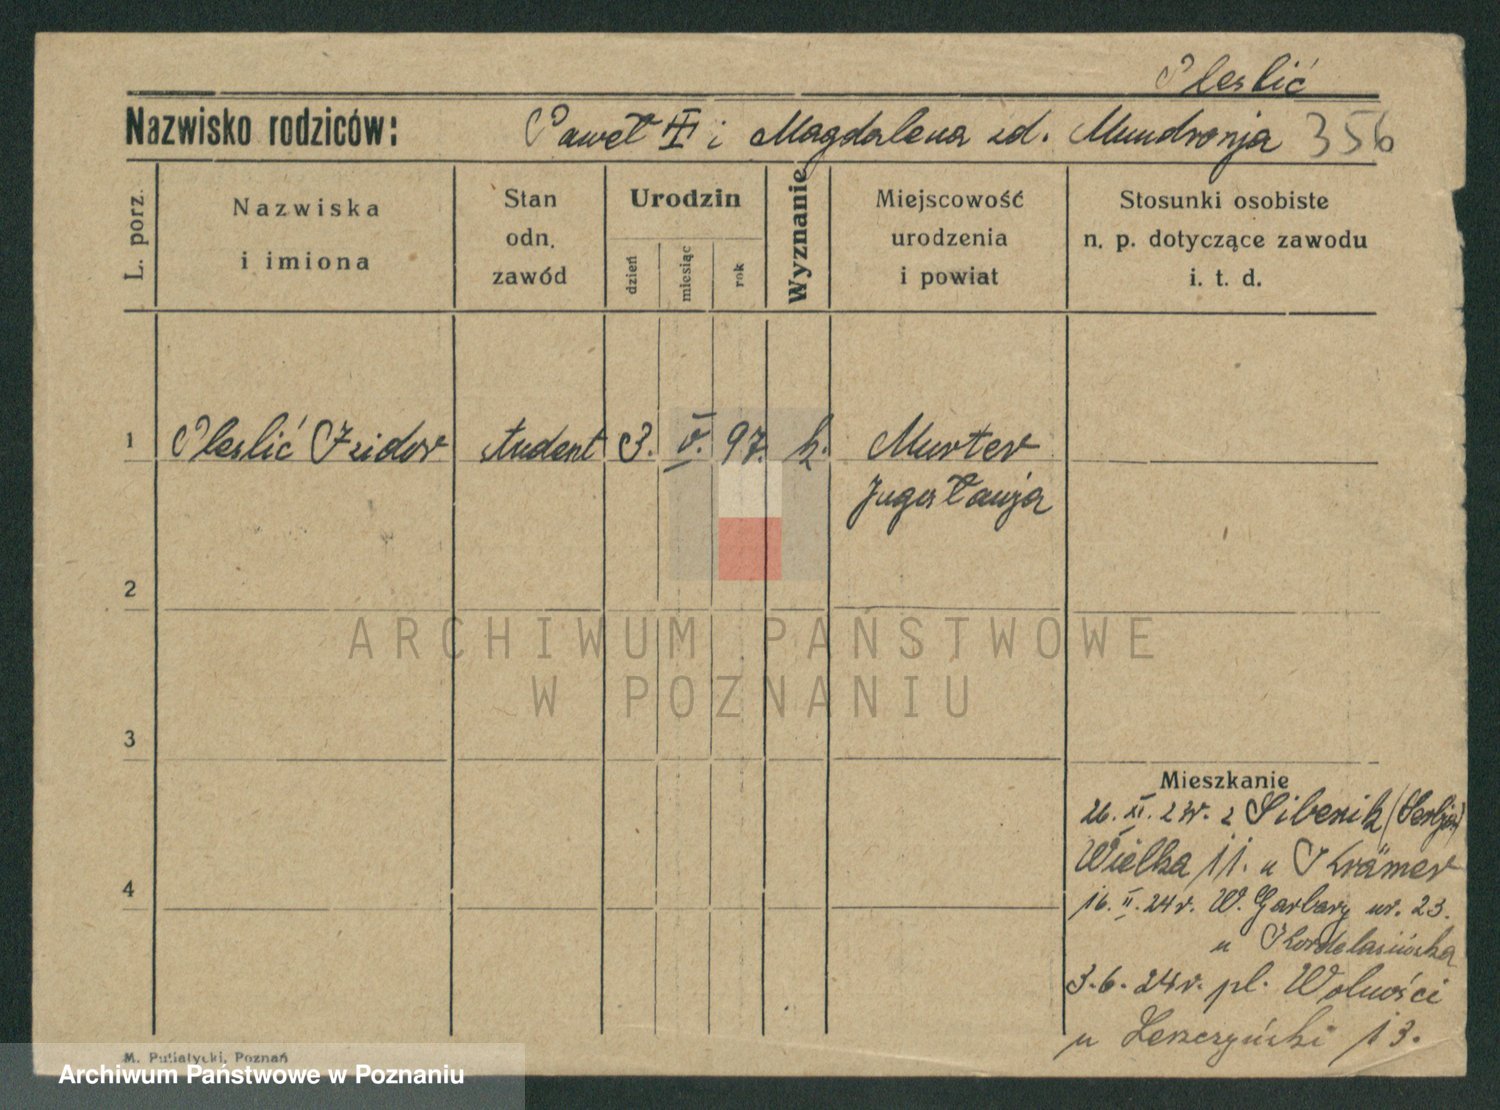 Pleslić
Nazwisko rodziców: Paweł i Magdalena zd. Mundronja 356
L. porz.
Nazwiska
i imiona
Stan
odn.
zawód
Urodzin
dzień
miesiąc
rok
Wyznanie
Miejscowość
urodzenia
i powiat
Stosunki osobiste
n. p. dotyczące zawodu
i. t. d.
1 Pleslić Izidor student 3. V. 97. k. Murter
Jugosławja
2
ARCHIWUM PAŃSTWOWE
W POZNANIU
3
Mieszkanie
26. XI. 23r. z Sibenik (Serbja)
Wielka 11. u Krämer
4
16. II. 24r. W. Garbary nr. 23.
u
3.6.24r. pl. Wolności
u Leszczyński 13.
M. Putiatycki, Poznań
Archiwum Państwowe w Poznaniu